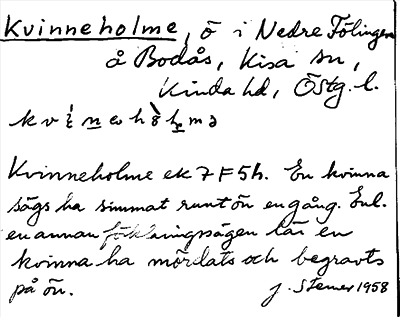 Kvinneholme, ö i Nedre Fölingen
å Bodås, Kisa sn,
Kinda hd, Östg. l.
Kvinneholme ek 7F5h. En kvinna
sägs ha simmat runt ön en gång. Enl.
en annan förklaringssägen lär en
kvinna ha mördats och begravts
på ön.
J. Sterner 1958